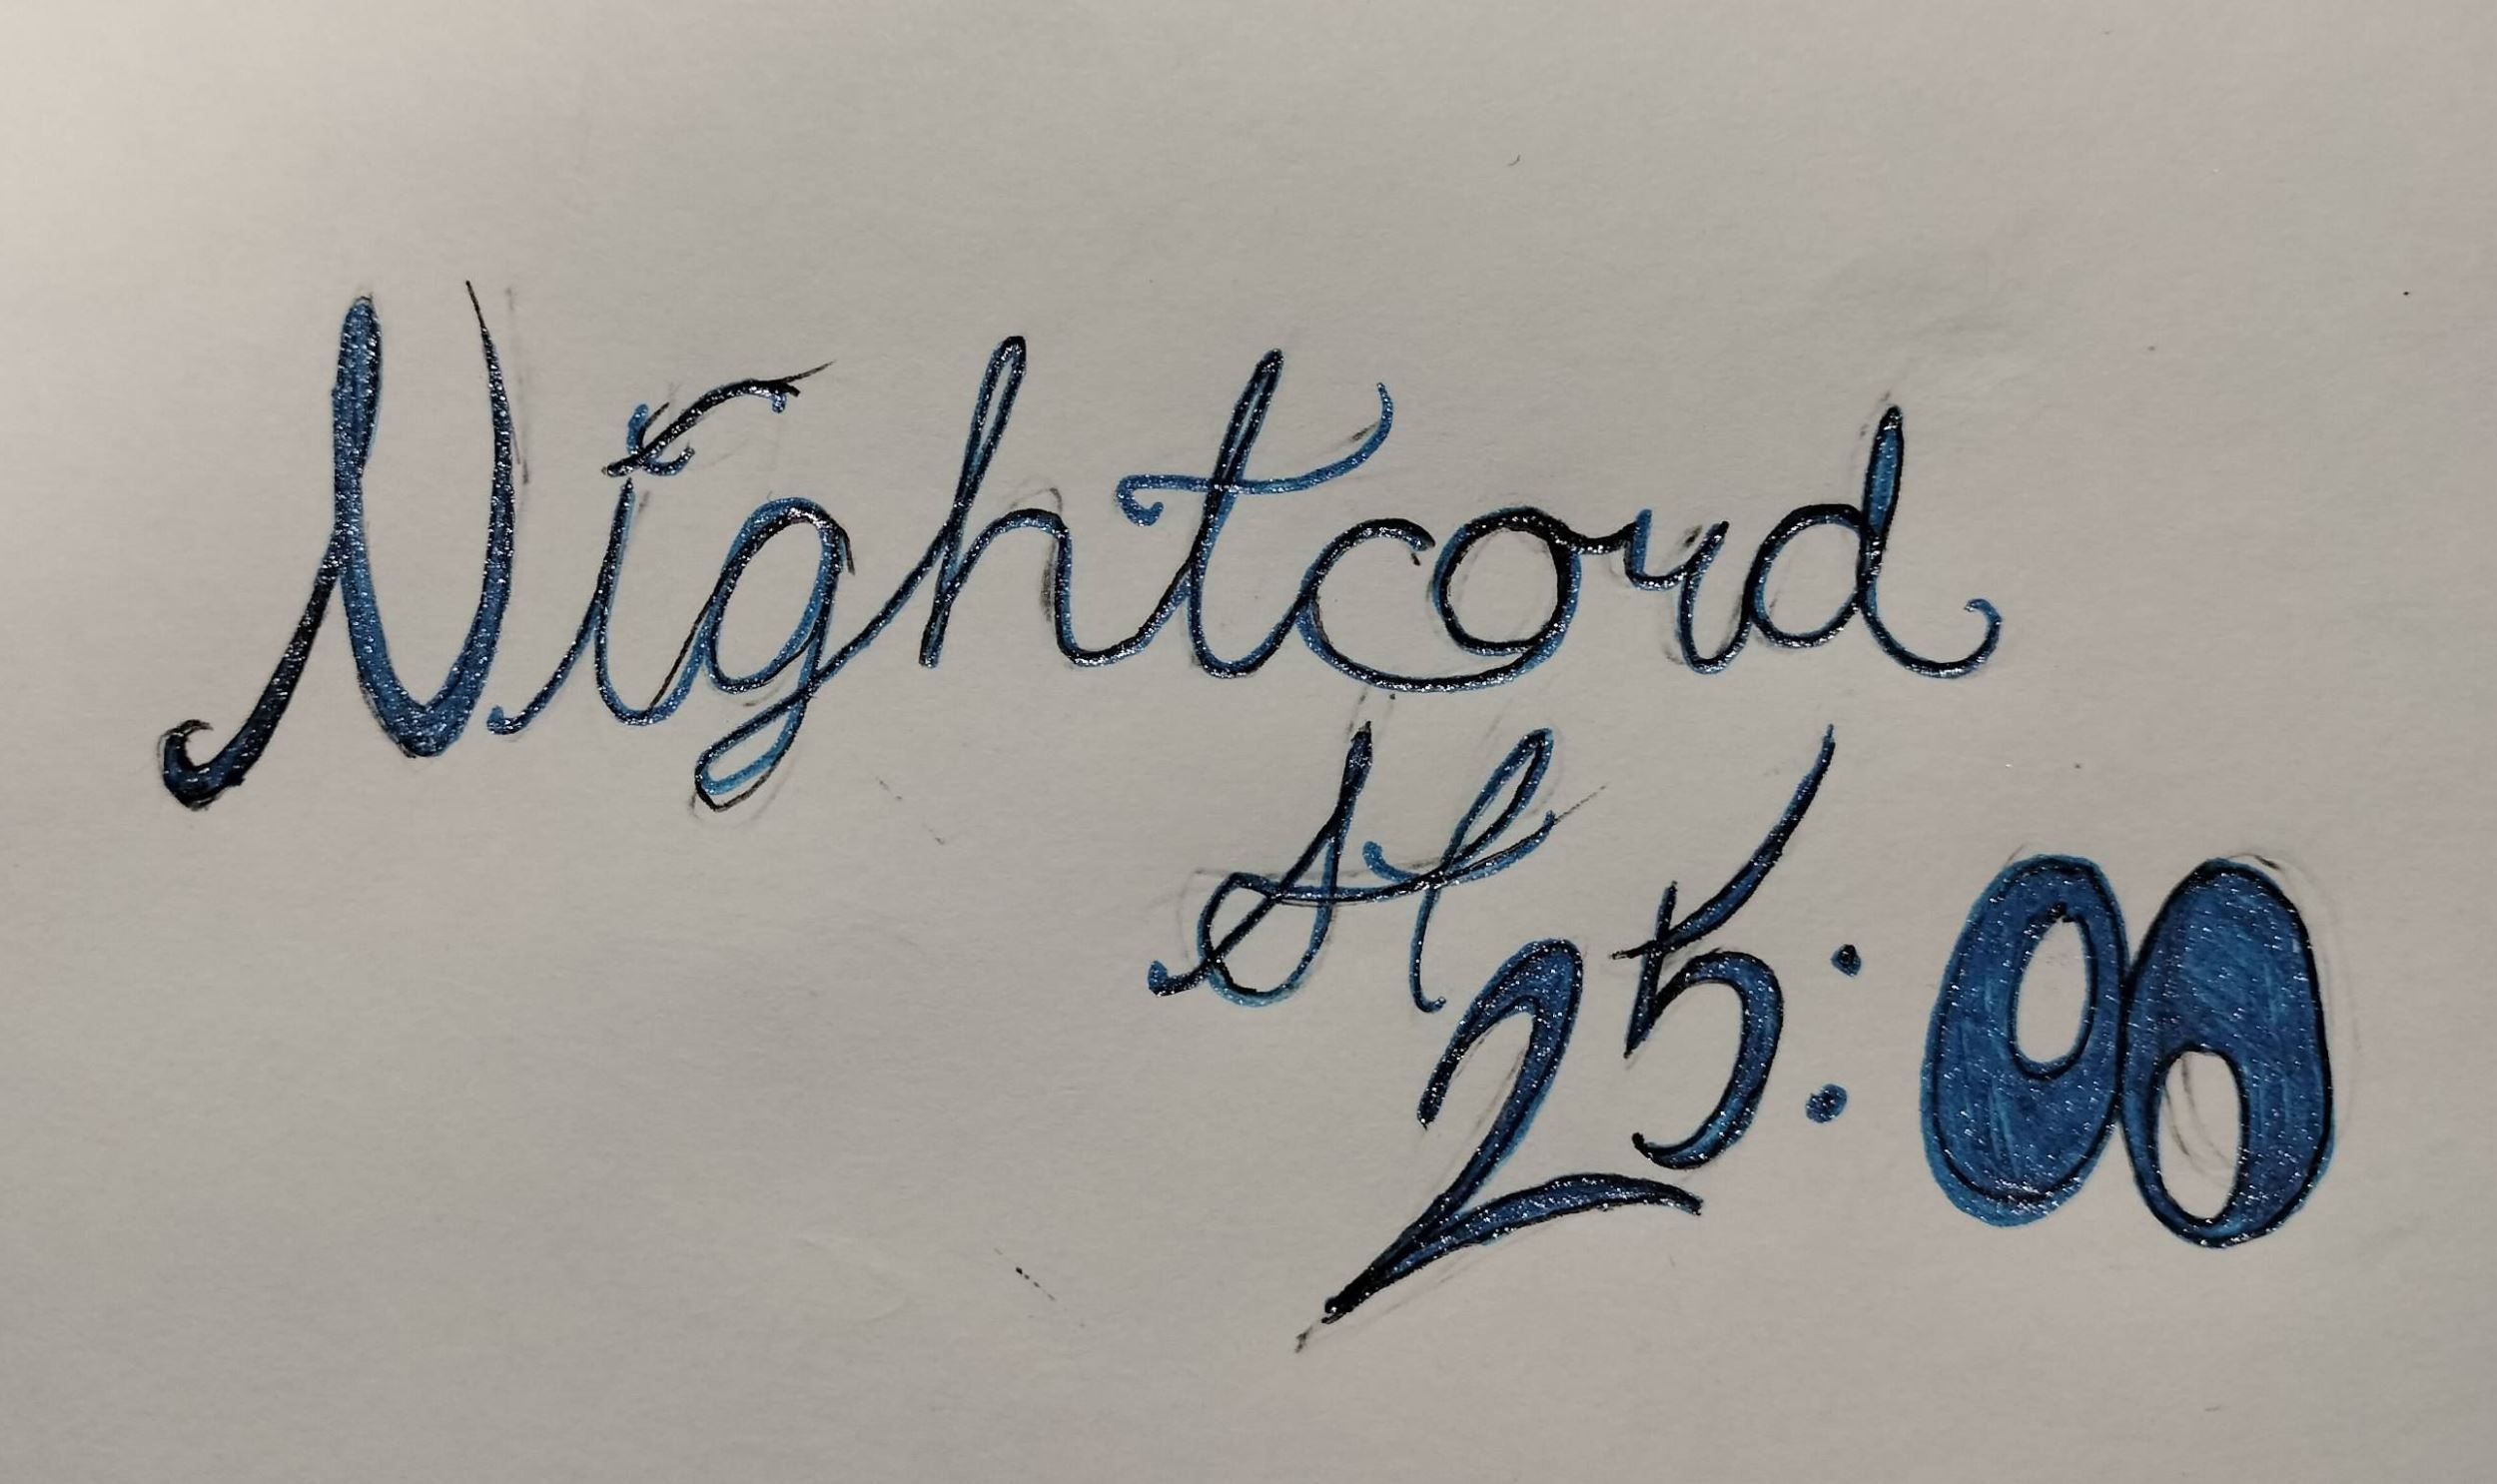 Nightcord
at
25:00